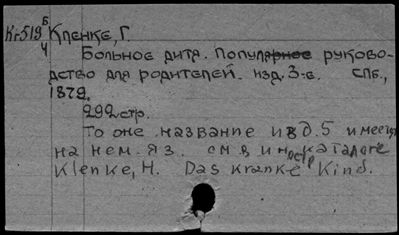 Кг519 Б/4 Кленке, Г.
Больное дитя. Популярное руково-
дство для родителей. изд. 3-е. СПб.,
1879.
292 стр.
То оне. название и в д. 5 имеется
на нем. яз. см. в иностр каталоге
Klenke, H. Das kranke Kind.